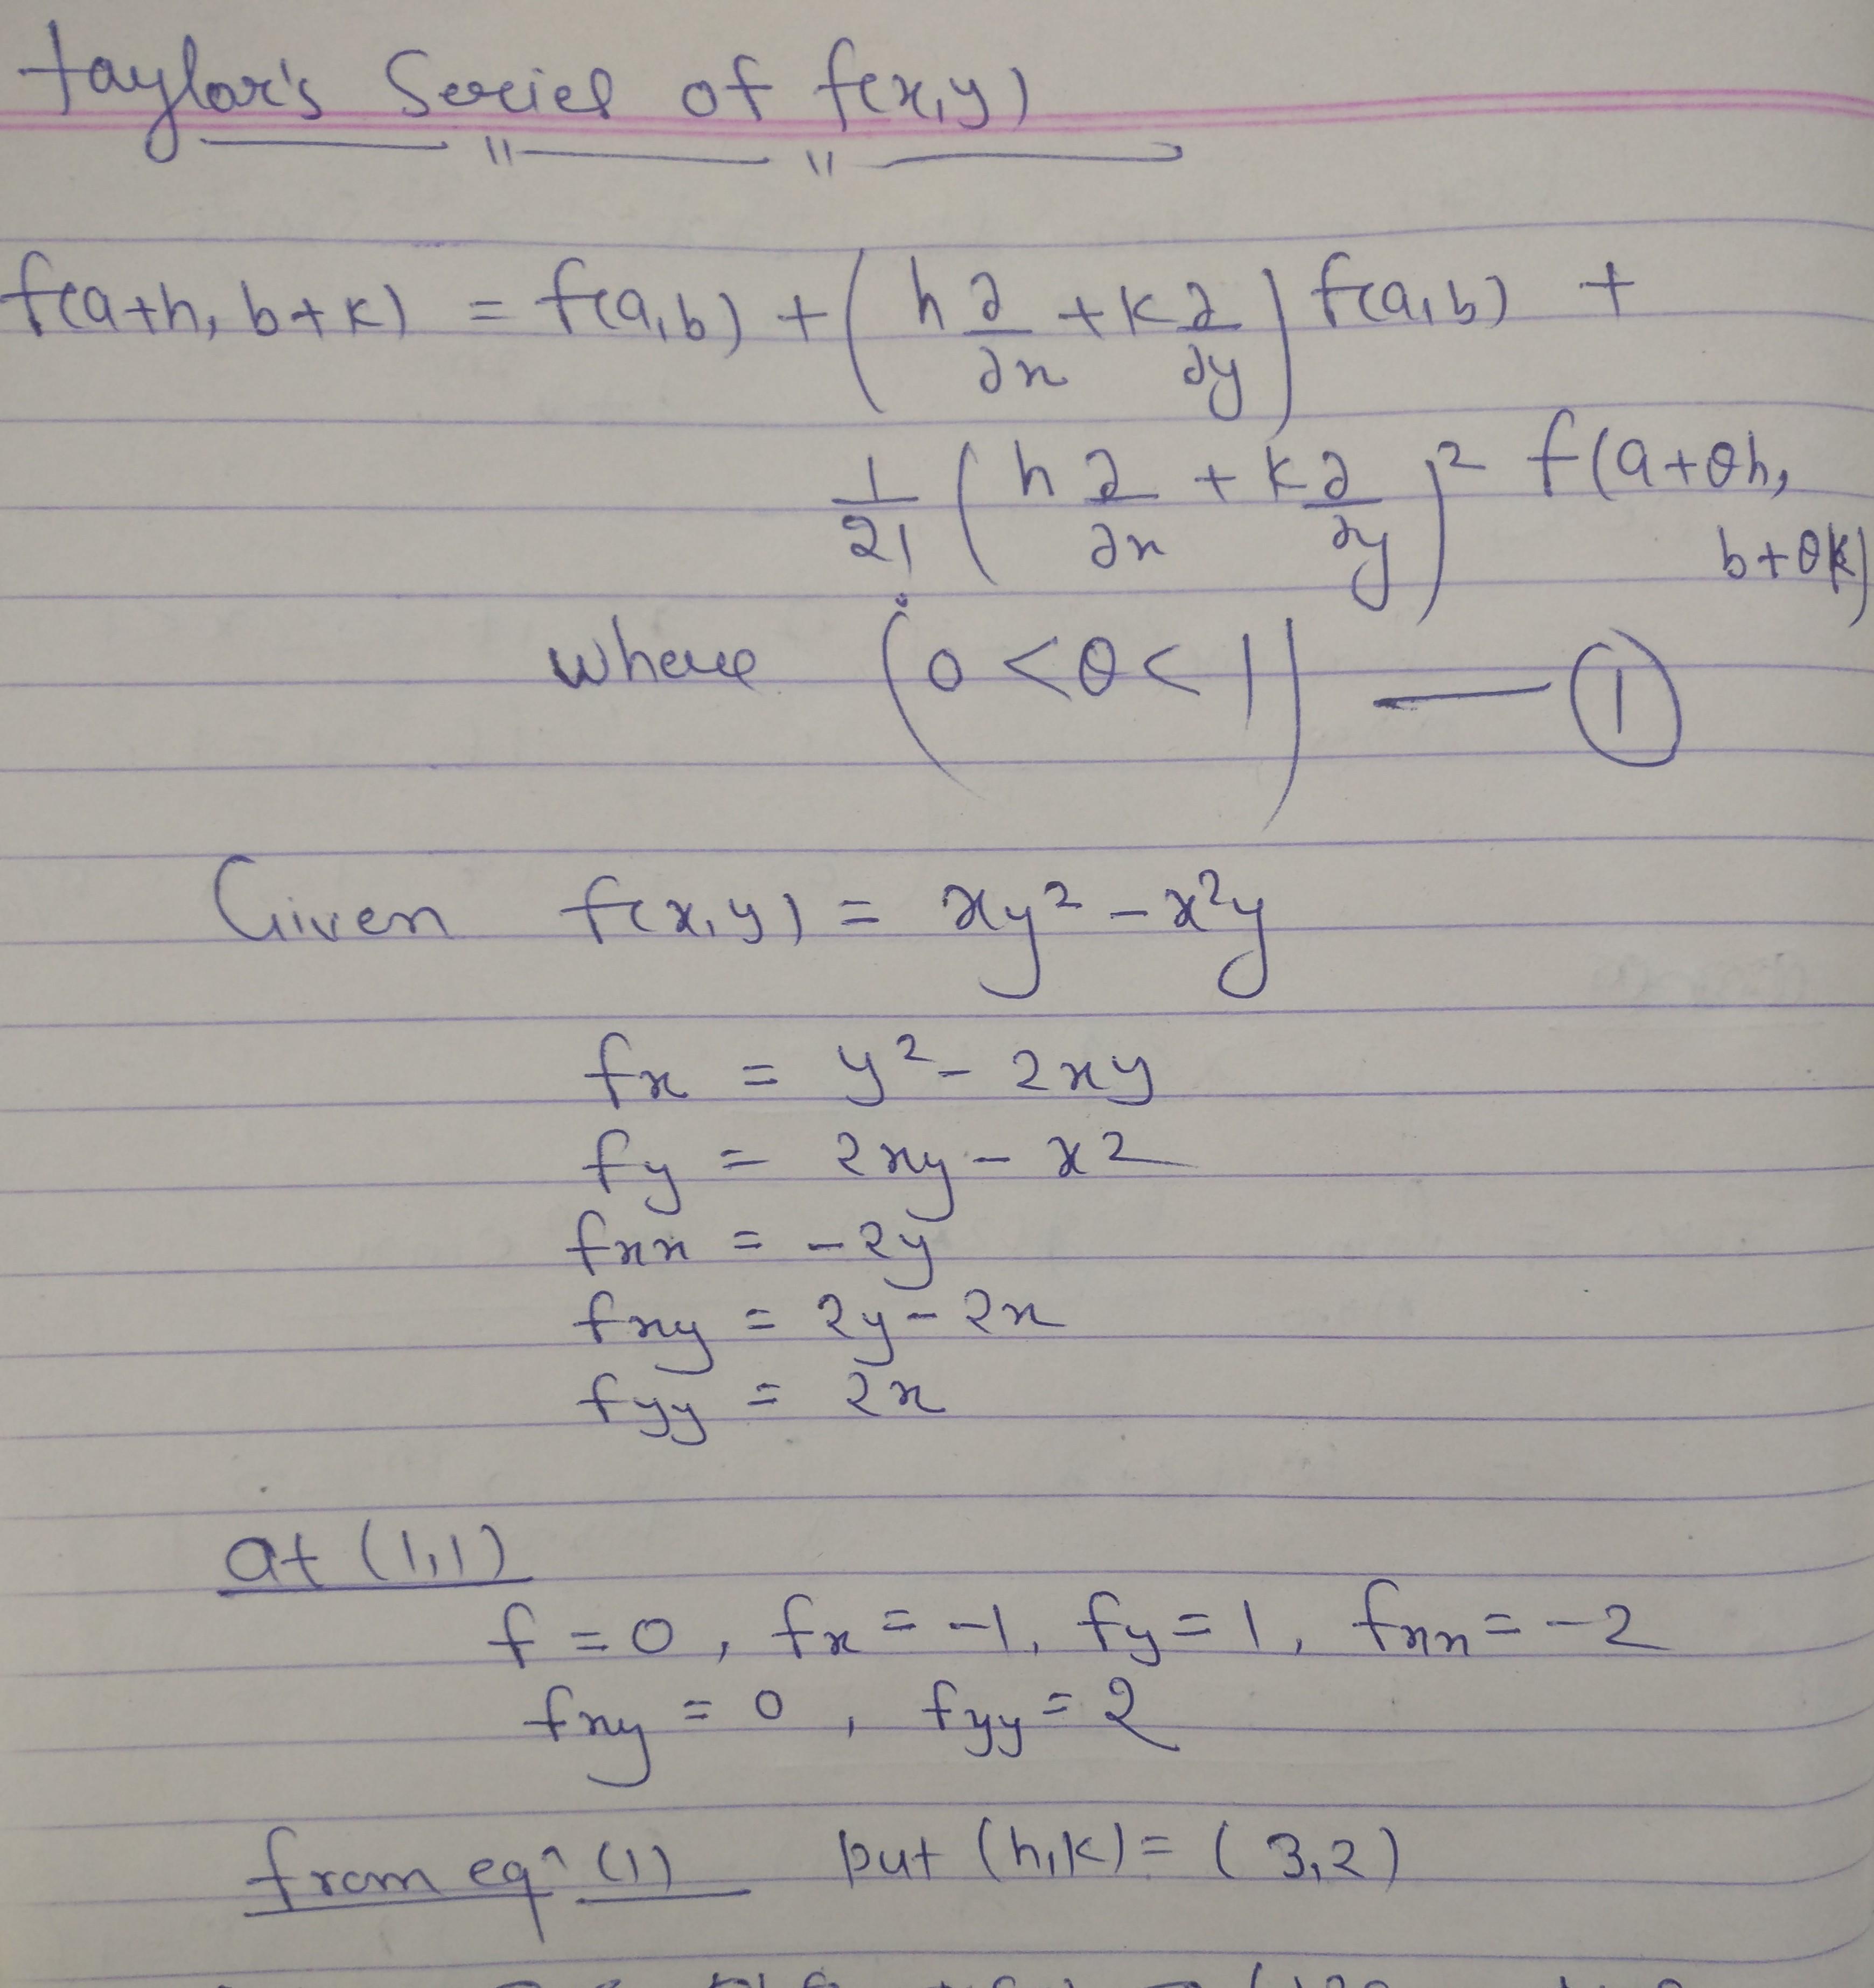 Taylor's Series of f(x,y)
f(a+h, b+k) = f(a,b) + (h ∂/∂x + k ∂/∂y) f(a,b) +
1/2! (h ∂/∂x + k ∂/∂y)² f(a+θh,
b+θk)
where (0<θ<1) — ①
Given f(x,y) = xy² - x²y
fx = y² - 2xy
fy = 2xy - x2
fxx = -2y
fxy = 2y - 2x
fyy = 2x
at (1,1)
f = 0, fx = -1, fy = 1, fxx = -2
fxy = 0, fyy = 2
from eqn (1) put (h,k) = (3,2)